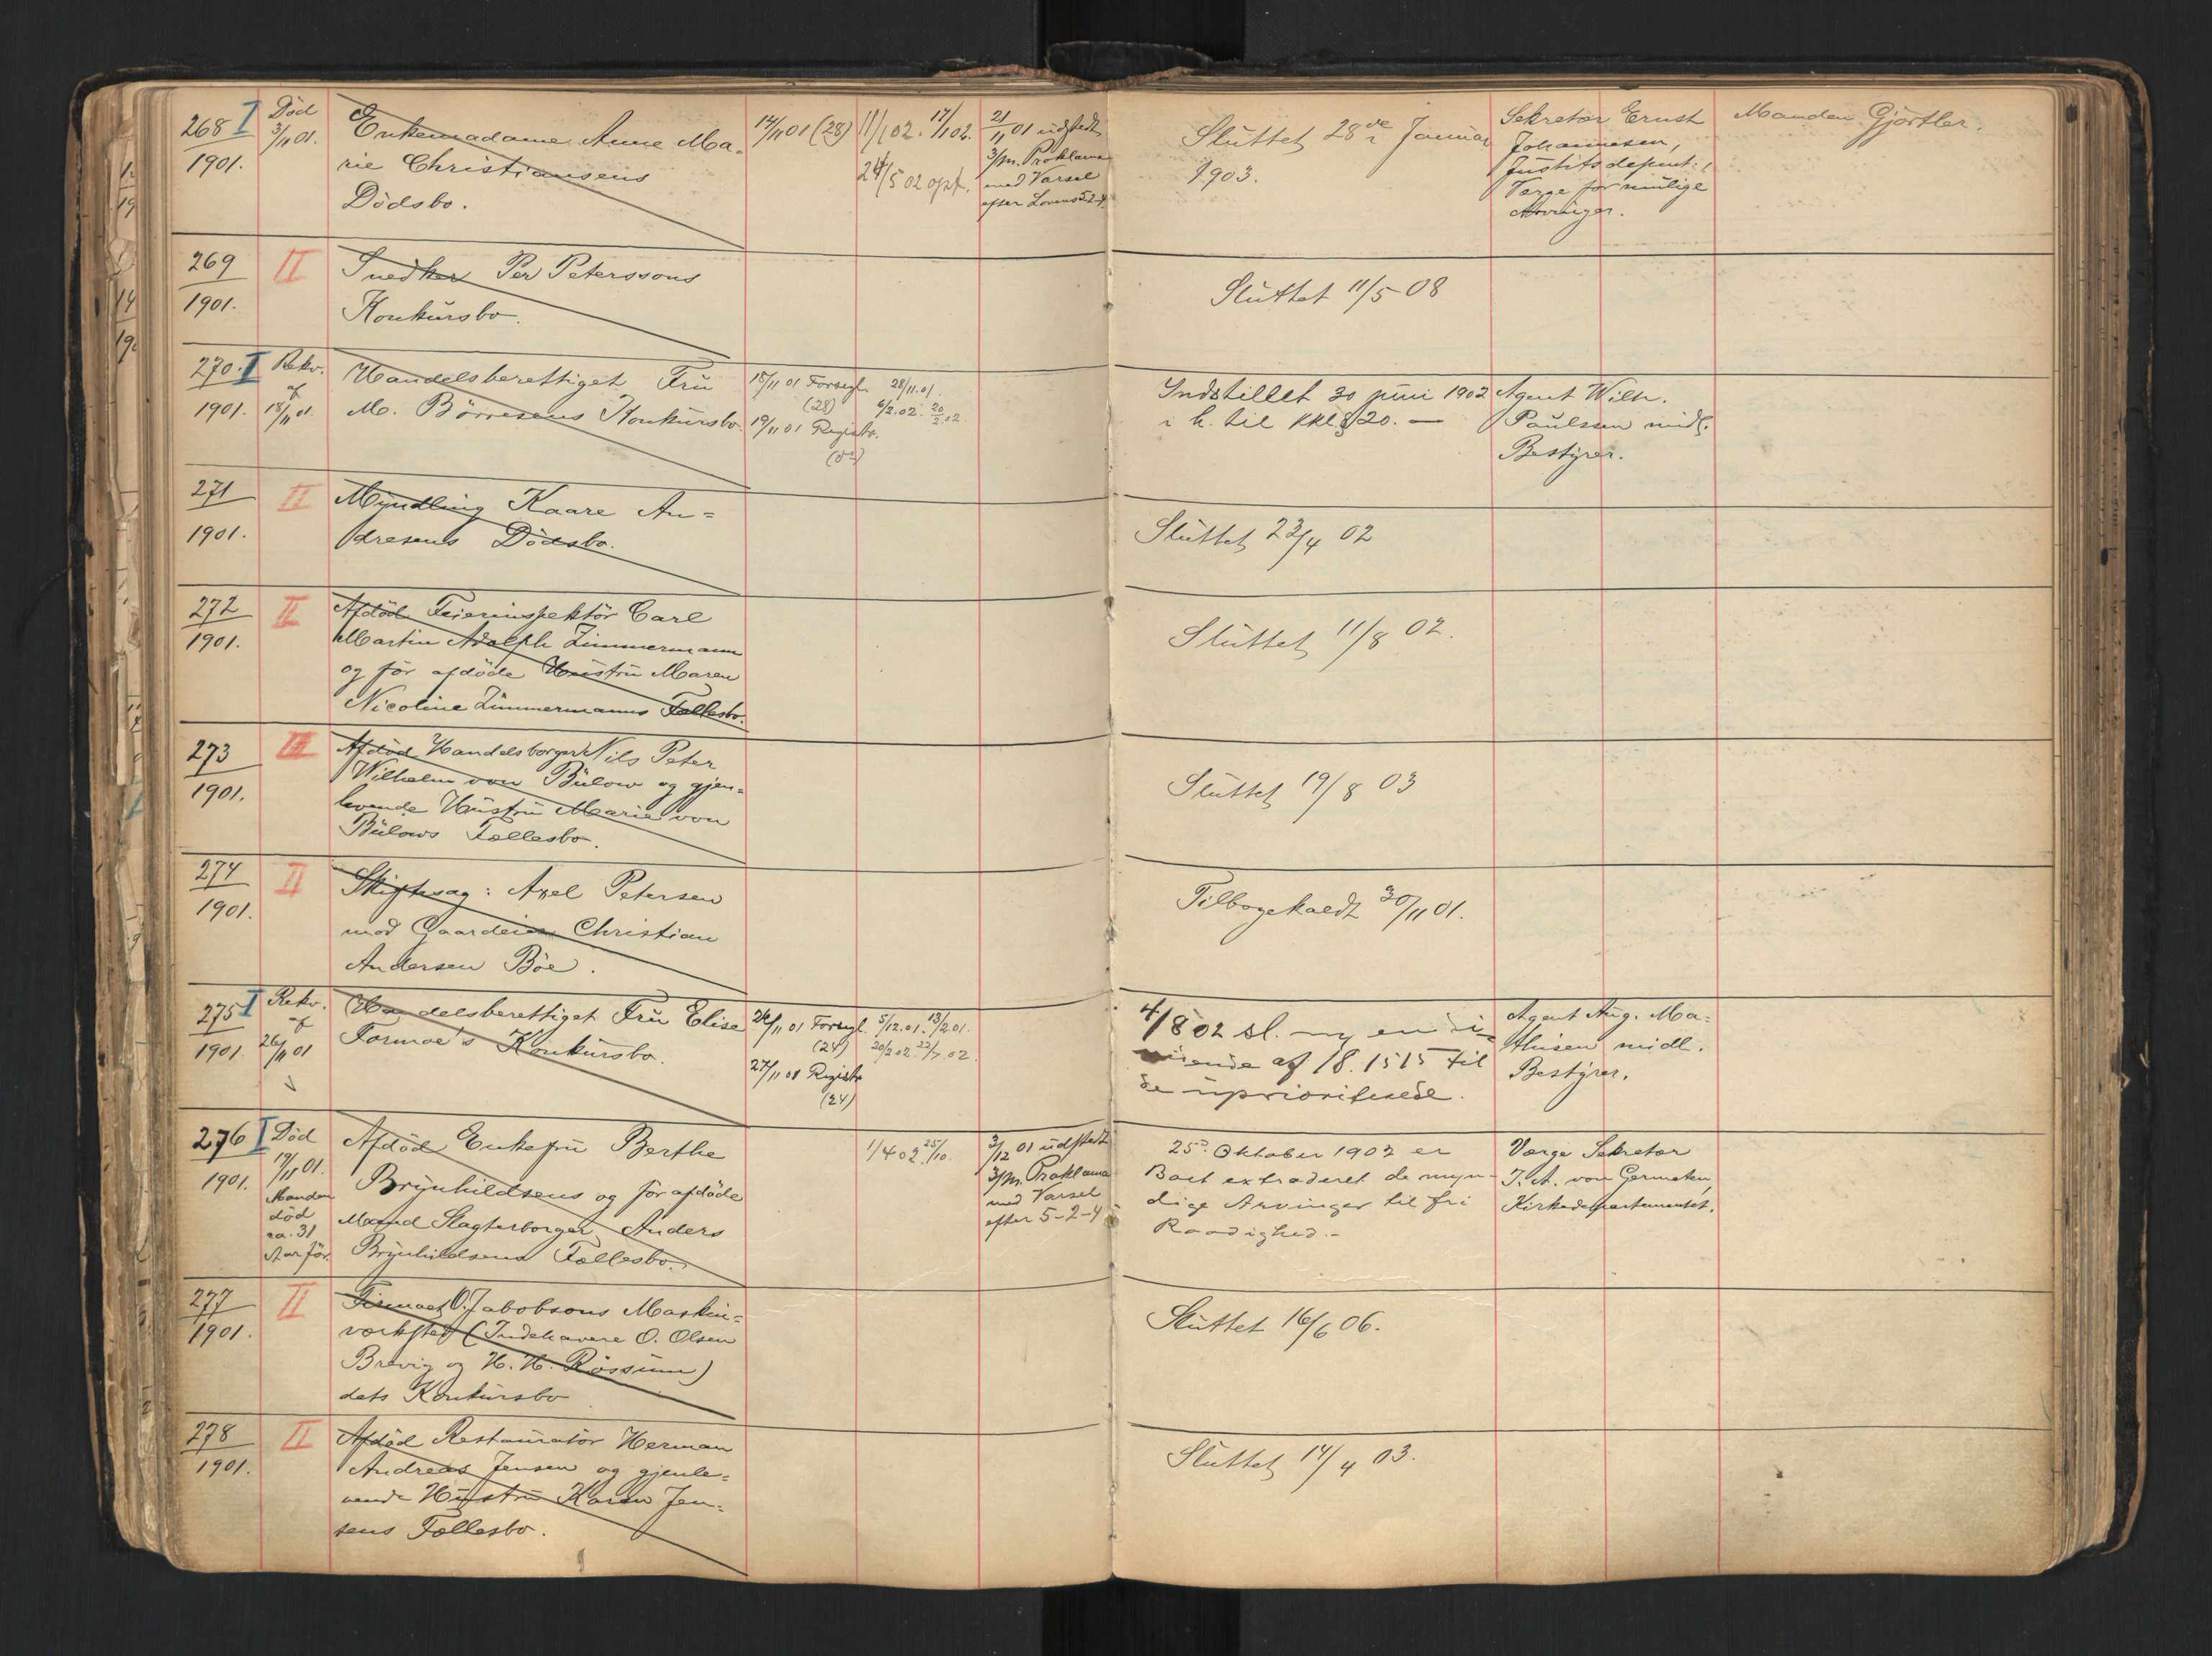 268 I Død Enkemadame Anne Ma- 14/11 01 (28) 11/1 02. 17/1 02. 21/11 01 udstedt Sluttet 28de Januar Sekretær Ernst Manden Gjørtler.
1901. 3/11 01. rie Christiansens 24/5 02 opf. 3/m. Proklama 1903. Johannesen,
Dödsbo. med Varsel Justitsdepmt:,
efter Lovens 5-2-4. Værge for mulige
Arvinger.
269 II Snedker Per Peterssons Sluttet 11/5 08
1901. Konkursbo.
270. I Rekv. Handelsberettiget Fru 18/11 01 Forsegl. 28/11.01. Indstillet 30 juni 1902 Agent Wilh.
1901. af 18/11 01. M. Börresens Konkursbo. (28) 6/2.02. 20/2 02. i h. til kkl § 20. — Paulsen midl.
19/11 01 Registr. Bestyrer.
271 II Myndling Kaare An= Sluttet 23/4 02
1901. dresens Dödsbo.
272 II Afdöd Feierinspektör Carl Sluttet 11/8 02.
1901. Martin Adolph Zimmermann
og för afdöde Hustru Maren
Nicoline Zimmermanns Fællesbo.
273 II Afdöd Handelsborger Nils Peter Sluttet 19/8 03
1901. Wilhelm von Bülow og gjen=
levende Hustru Marie von
Bülows Fællesbo.
274 II Skiftesag: Axel Petersen Tilbagekaldt 30/11 01.
1901. mod Gaardeier Christian
Andersen Böe.
275 I Rekv. Handelsberettiget Fru Elise 26/11 01 Forsegl. 5/12.01. 13/2 01. 4/8 02 sl. Agent Aug. Ma=
1901. af 26/11 01 Formoe's Konkursbo. (24) 20/2 02. 22/7.02. af 18.1515 til thisen midl.
27/11 01 Registr. de uprioriterede. Bestyrer.
(24)
276 I Död Afdöd Enkefru Berthe 1/4 02 25/10. 3/12 01 udstedt 25de Oktober 1902 er Værge Sekretær
1901. 19/11 01. Brynhildsens og för afdöde 3/m. Proklama Boet extraderet de myn- J. A. von
Manden Mand Slagterborger Anders med Varsel dige Arvinger til fri Kirkedepartementet.
död Brynhildsens Fællesbo. efter 5-2-4 Raadighed.-
ca. 31
Aar för.
277 II Firmaet O. Jakobsons Maskin= Sluttet 16/6 06.
1901. værksted (Indehavere O. Olsen
Brevig og H. H. Rössum)
dets Konkursbo
278 II Afdöd Restauratör Herman Sluttet 14/4 03.
1901. Andreas Jensen og gjenle=
vende Hustru Karen Jen=
sens Fællesbo.